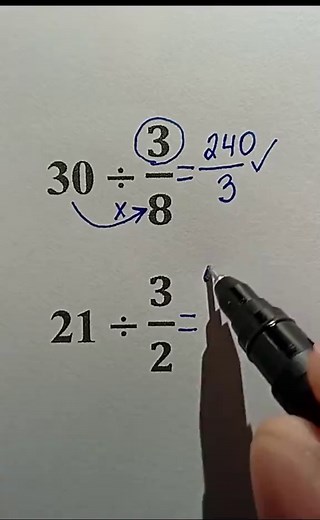 30 ÷ 3/8 = 240/3 ✓
x
21 ÷ 3/2 =